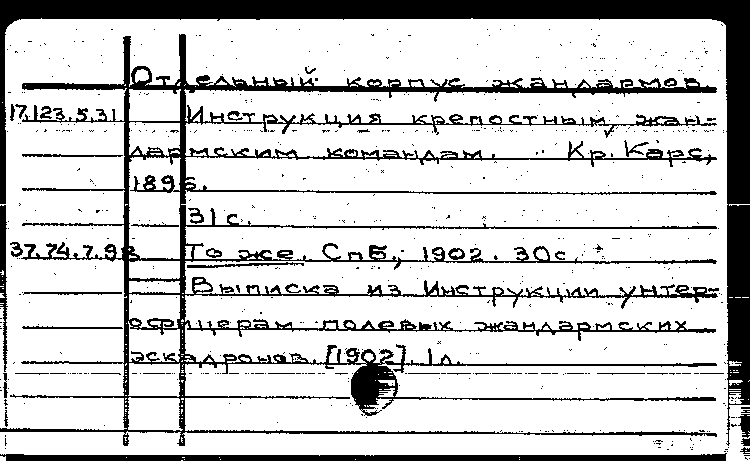 Отдельный корпус жандармов.
17.123.5.31 Инструкция крепостным жан-
дармским командам. Кр. Карс,
1896.
31 с.
37.74.7.98 То же. СпБ., 1902. 30с.
Выписка из Инструкции унтер-
офицерам полевых жандармских
эскадронов. [1902]. 1л.